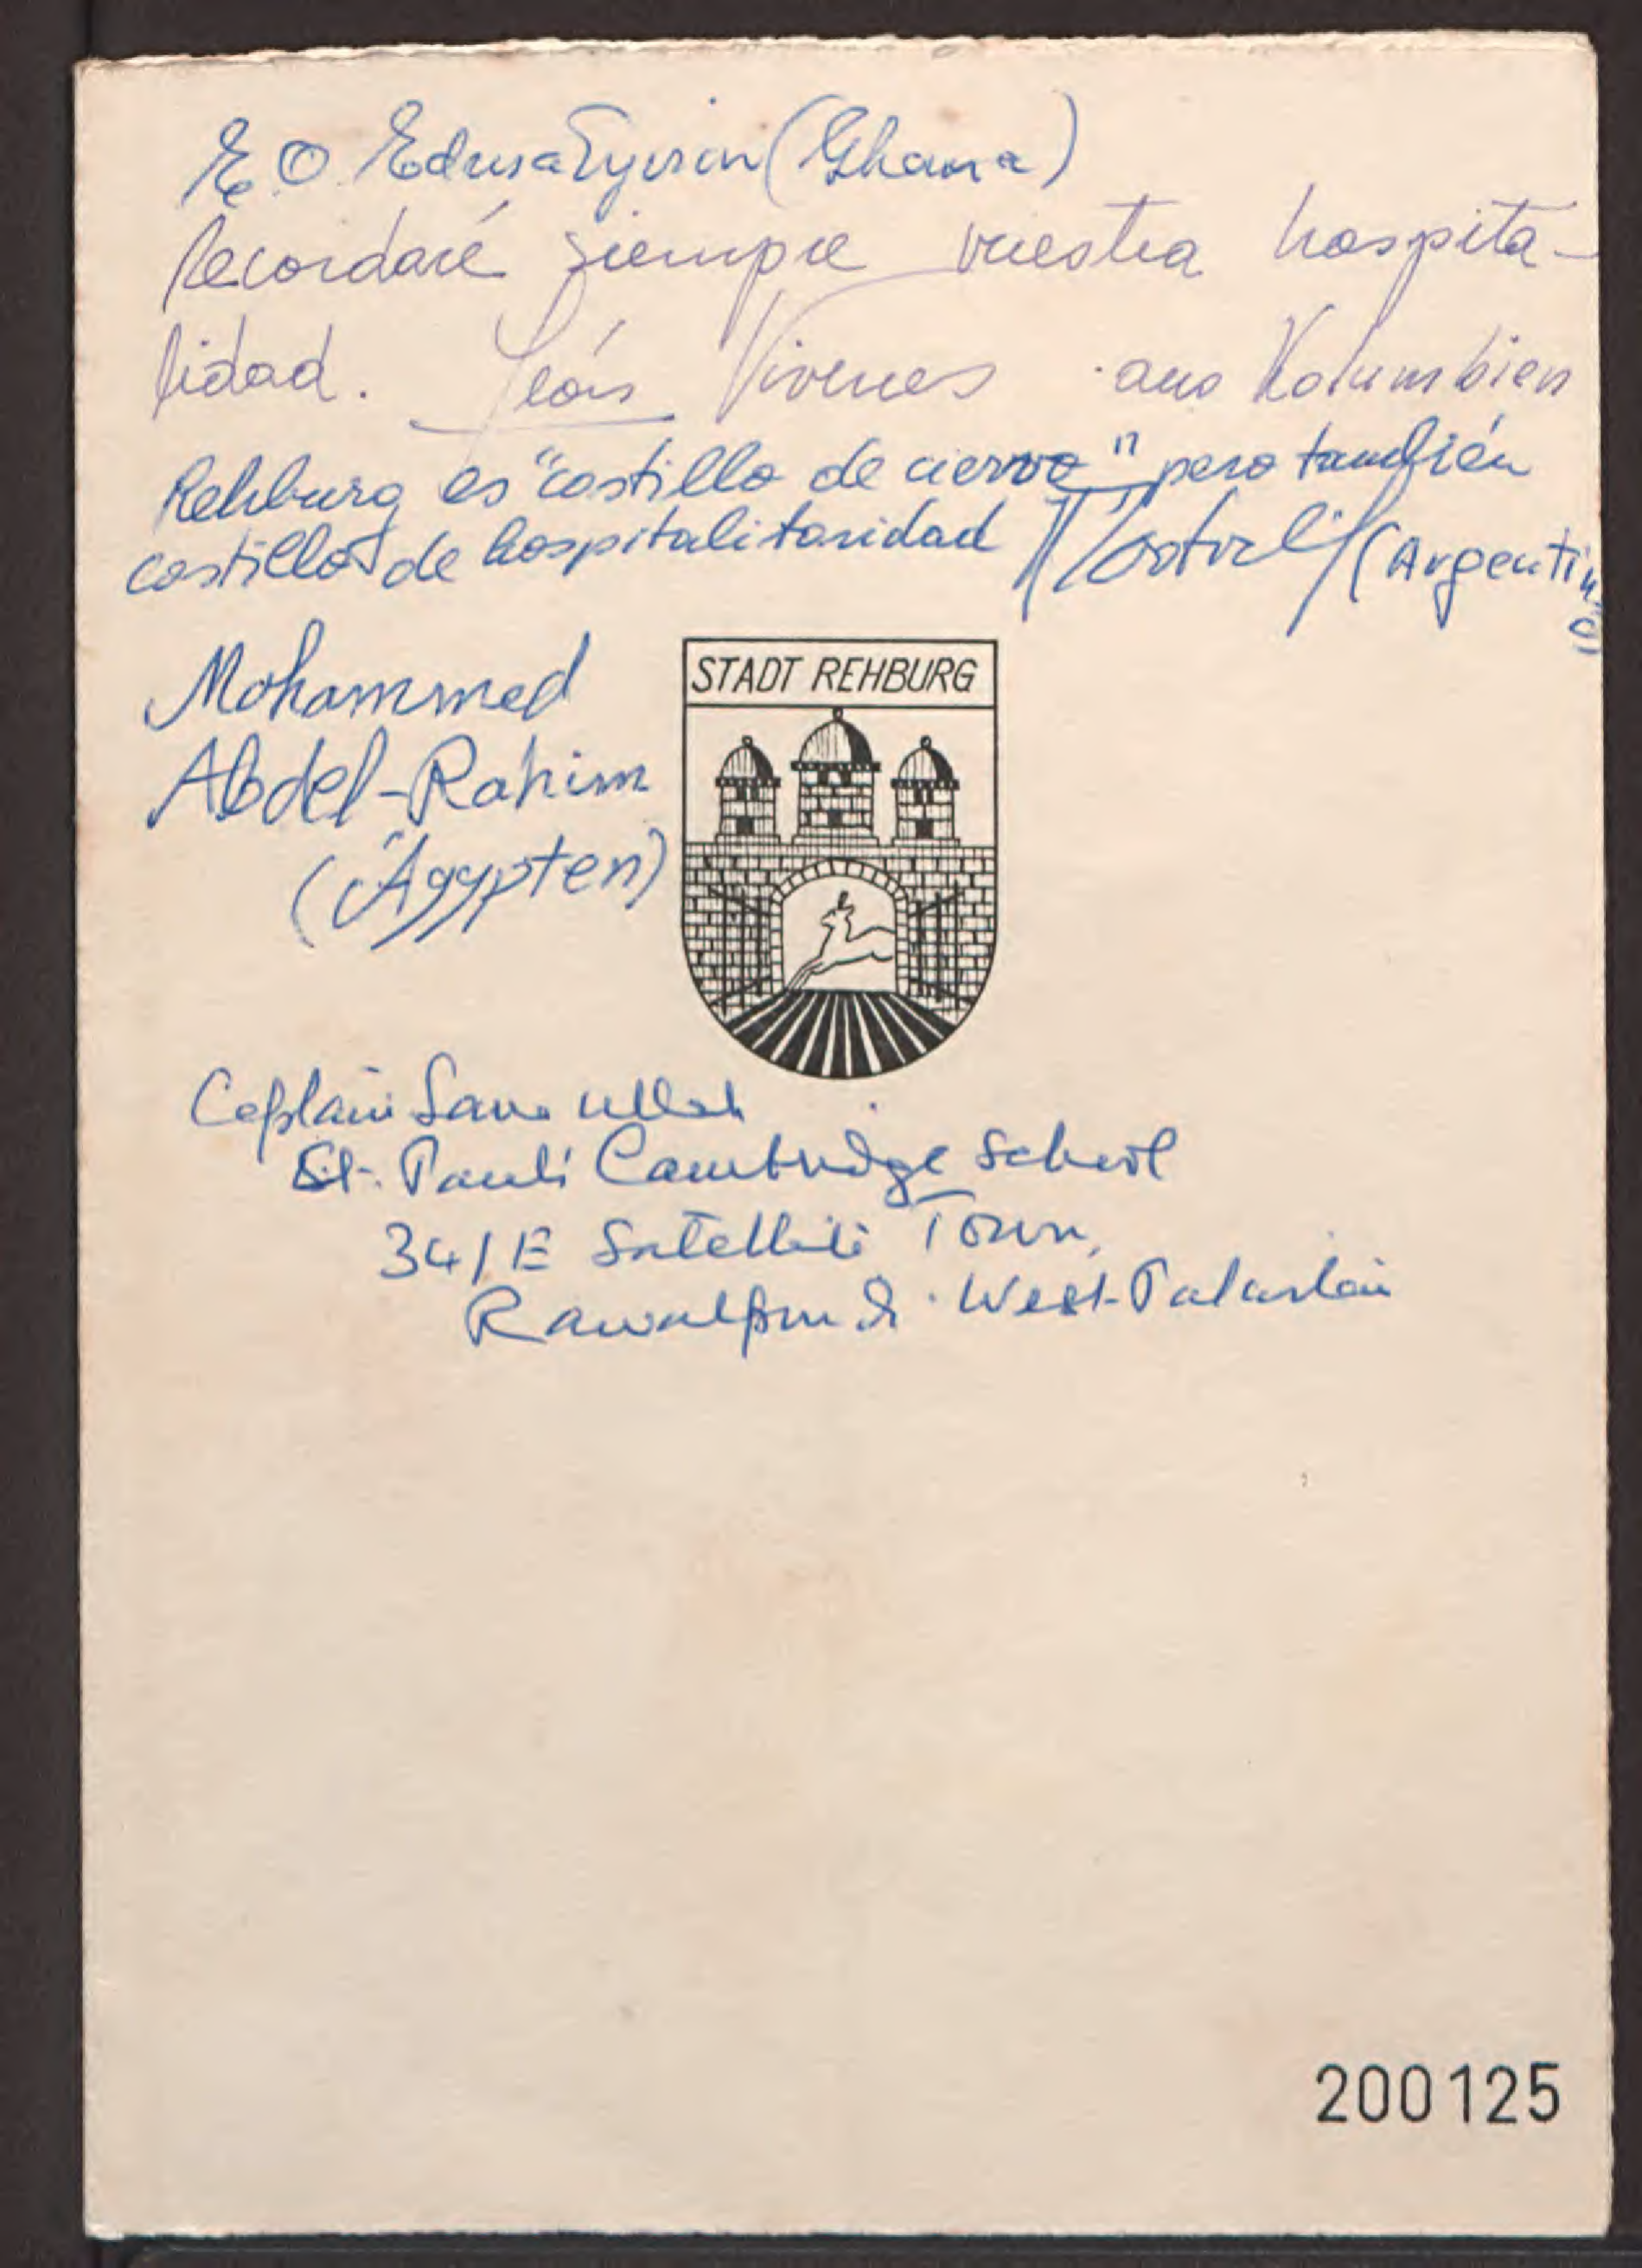 E. O. Edusa Eyison (Ghana)
Recordaré siempre vuestra hospita-
lidad. León Vivenes aus Kolumbien
Rehburg es "costillo de ciervo" pero también
costillo de hospitalitaridad (Argentino)
Mohammed
Abdel-Rahim
(Ägypten)
STADT REHBURG
Captain Sana Ullah
St. Paul's Cambridge School
34/E Satellite Town,
Rawalpindi. West-Pakistan
200125